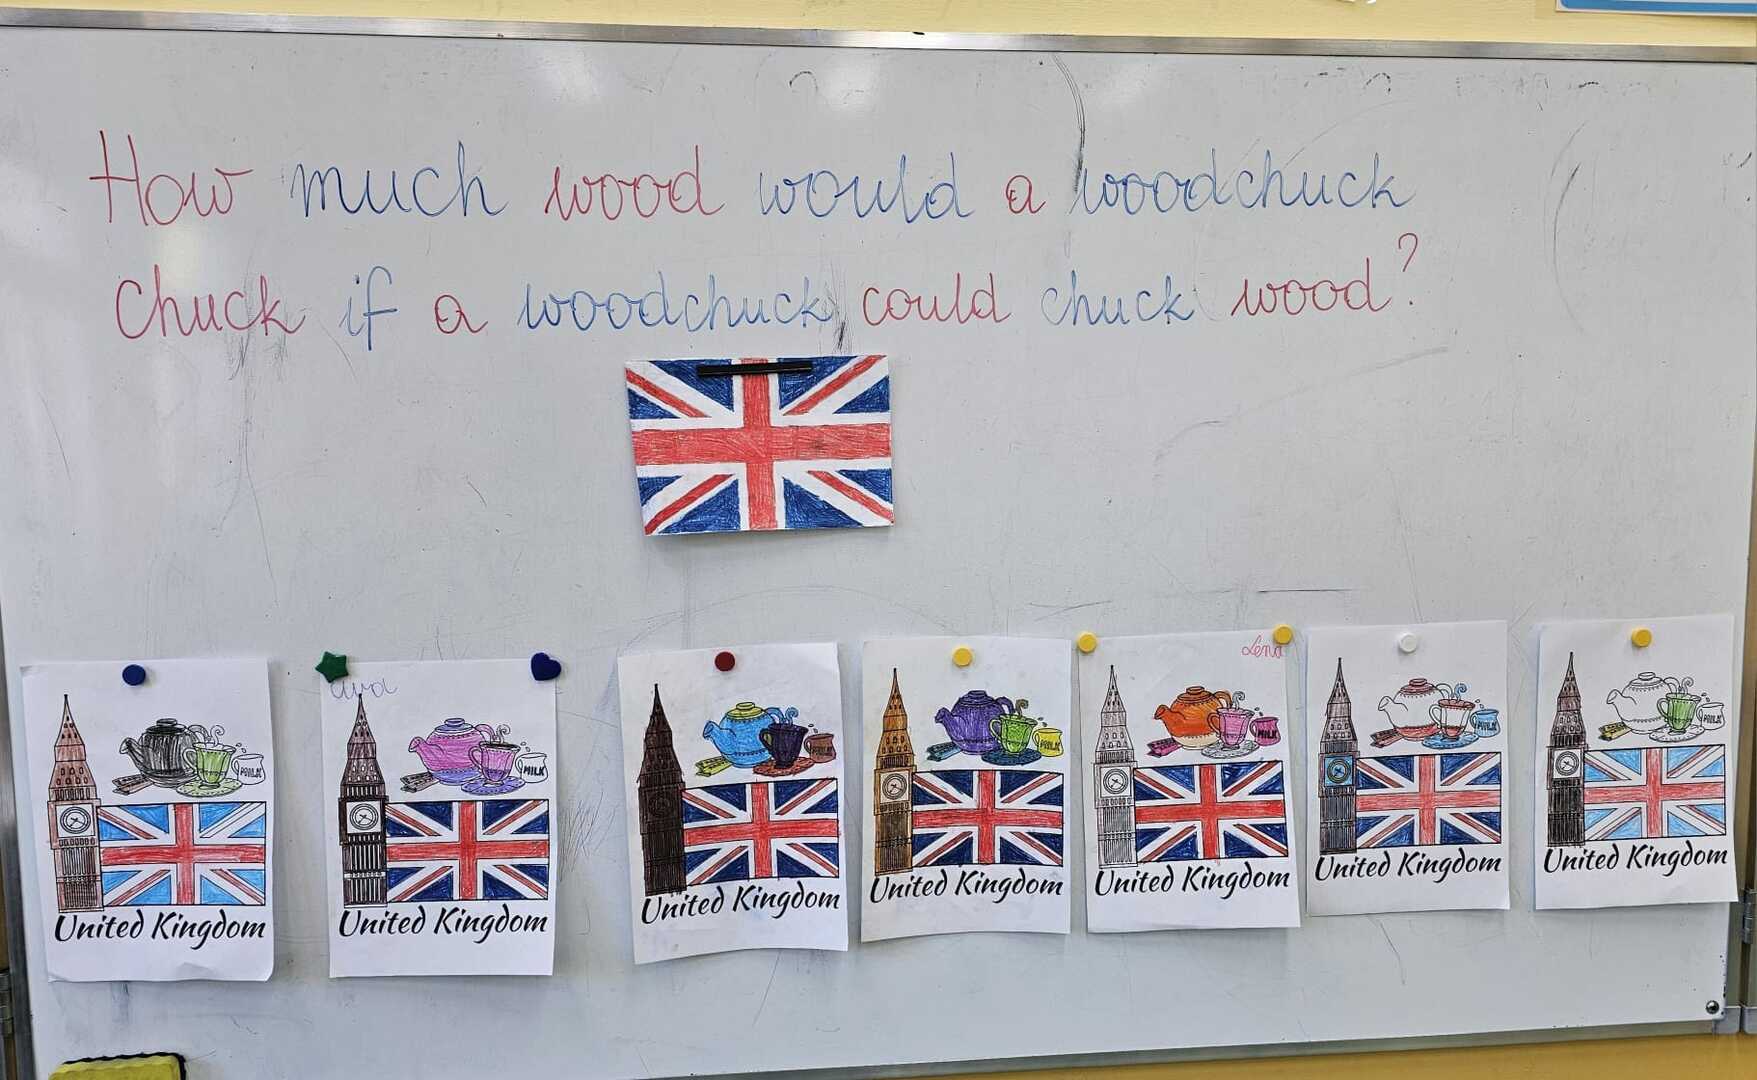 How much wood would a woodchuck
chuck if a woodchuck could chuck wood?
Lena
MILK
MILK
MILK
MILK
MILK
MILK
MILK
United Kingdom
United Kingdom
United Kingdom
United Kingdom
United Kingdom
United Kingdom
United Kingdom